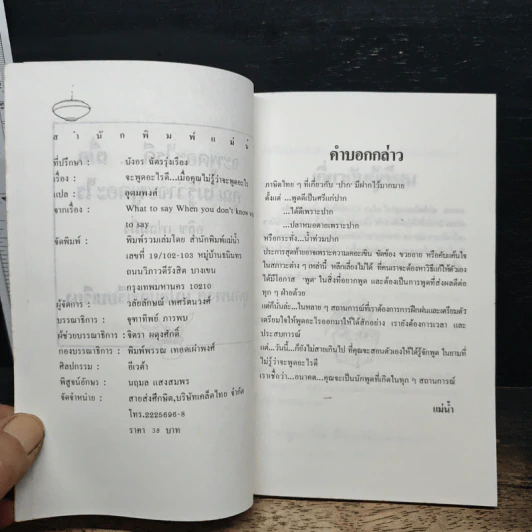 สำนักพิมพ์แม่น้ำ
ที่ปรึกษา : บังกร ฉัตรรุ่งเรือง
เรื่อง : จะพูดอะไรดี...เมื่อคุณไม่รู้ว่าจะพูดอะไร
แปล : อุดมพงศ์
จากเรื่อง : What to say When you don't know
to say
จัดพิมพ์ : พิมพ์รวมเล่มโดย สำนักพิมพ์แม่น้ำ
เลขที่ 19/102-103 หมู่บ้านธนินทร
ถนนวิภาวดีรังสิต บางเขน
กรุงเทพมหานคร 10210
ผู้จัดการ : วลัยลักษณ์ เทศรัตนวงศ์
บรรณาธิการ : จุฑาทิพย์ ภารพบ
ผู้ช่วยบรรณาธิการ : จิตรา ผดุงศักดิ์
กองบรรณาธิการ : พิมพ์พรรณ เทอดเผ่าพงศ์
ศิลปกรรม : อีเวด้า
พิสูจน์อักษร : นฤมล แสงสมพร
จัดจำหน่าย : สายส่งศึกษิต,บริษัทเคล็ดไทย จำกัด
โทร.2225696-8
ราคา 38 บาท
คำบอกกล่าว
ภาษิตไทย ๆ ที่เกี่ยวกับ 'ปาก' มีฝากไว้มากมาย
ตั้งแต่ ...พูดดีเป็นศรีแก่ปาก
...ได้ดีเพราะปาก
...ปลาหมอตายเพราะปาก
หรือกระทั่ง...น้ำท่วมปาก
ประการสุดท้ายอาจเพราะความเคอะเขิน ขัดข้อง ขวยอาย หรือคับแค้นใจ
ในสภาวะต่าง ๆ เหล่านี้ หลีกเลี่ยงไม่ได้ ที่คนเราจะต้องหาวิธีแก้ไขด้วยตัวเอง
ได้มีโอกาส 'พูด' ในสิ่งที่อยากพูด และต้องเป็นการพูดที่ส่งผลดีต่อ
ทุก ๆ ฝ่ายด้วย
แต่ก็นั่นล่ะ...ในหลาย ๆ สถานการณ์ที่เราต้องการการฝึกฝนและเตรียมตัว
เตรียมใจให้พูดอะไรออกมาให้ได้สักอย่าง เรายังต้องการเวลา และ
ประสบการณ์
แต่...วันนี้...ก็ยังไม่สายเกินไป ที่คุณจะสอนตัวเองให้ได้รู้จักพูด ในยามที่
ไม่รู้ว่าจะพูดอะไรดี
เราเชื่อว่า...อนาคต...คุณจะเป็นนักพูดที่เกิดในทุก ๆ สถานการณ์
แม่น้ำ